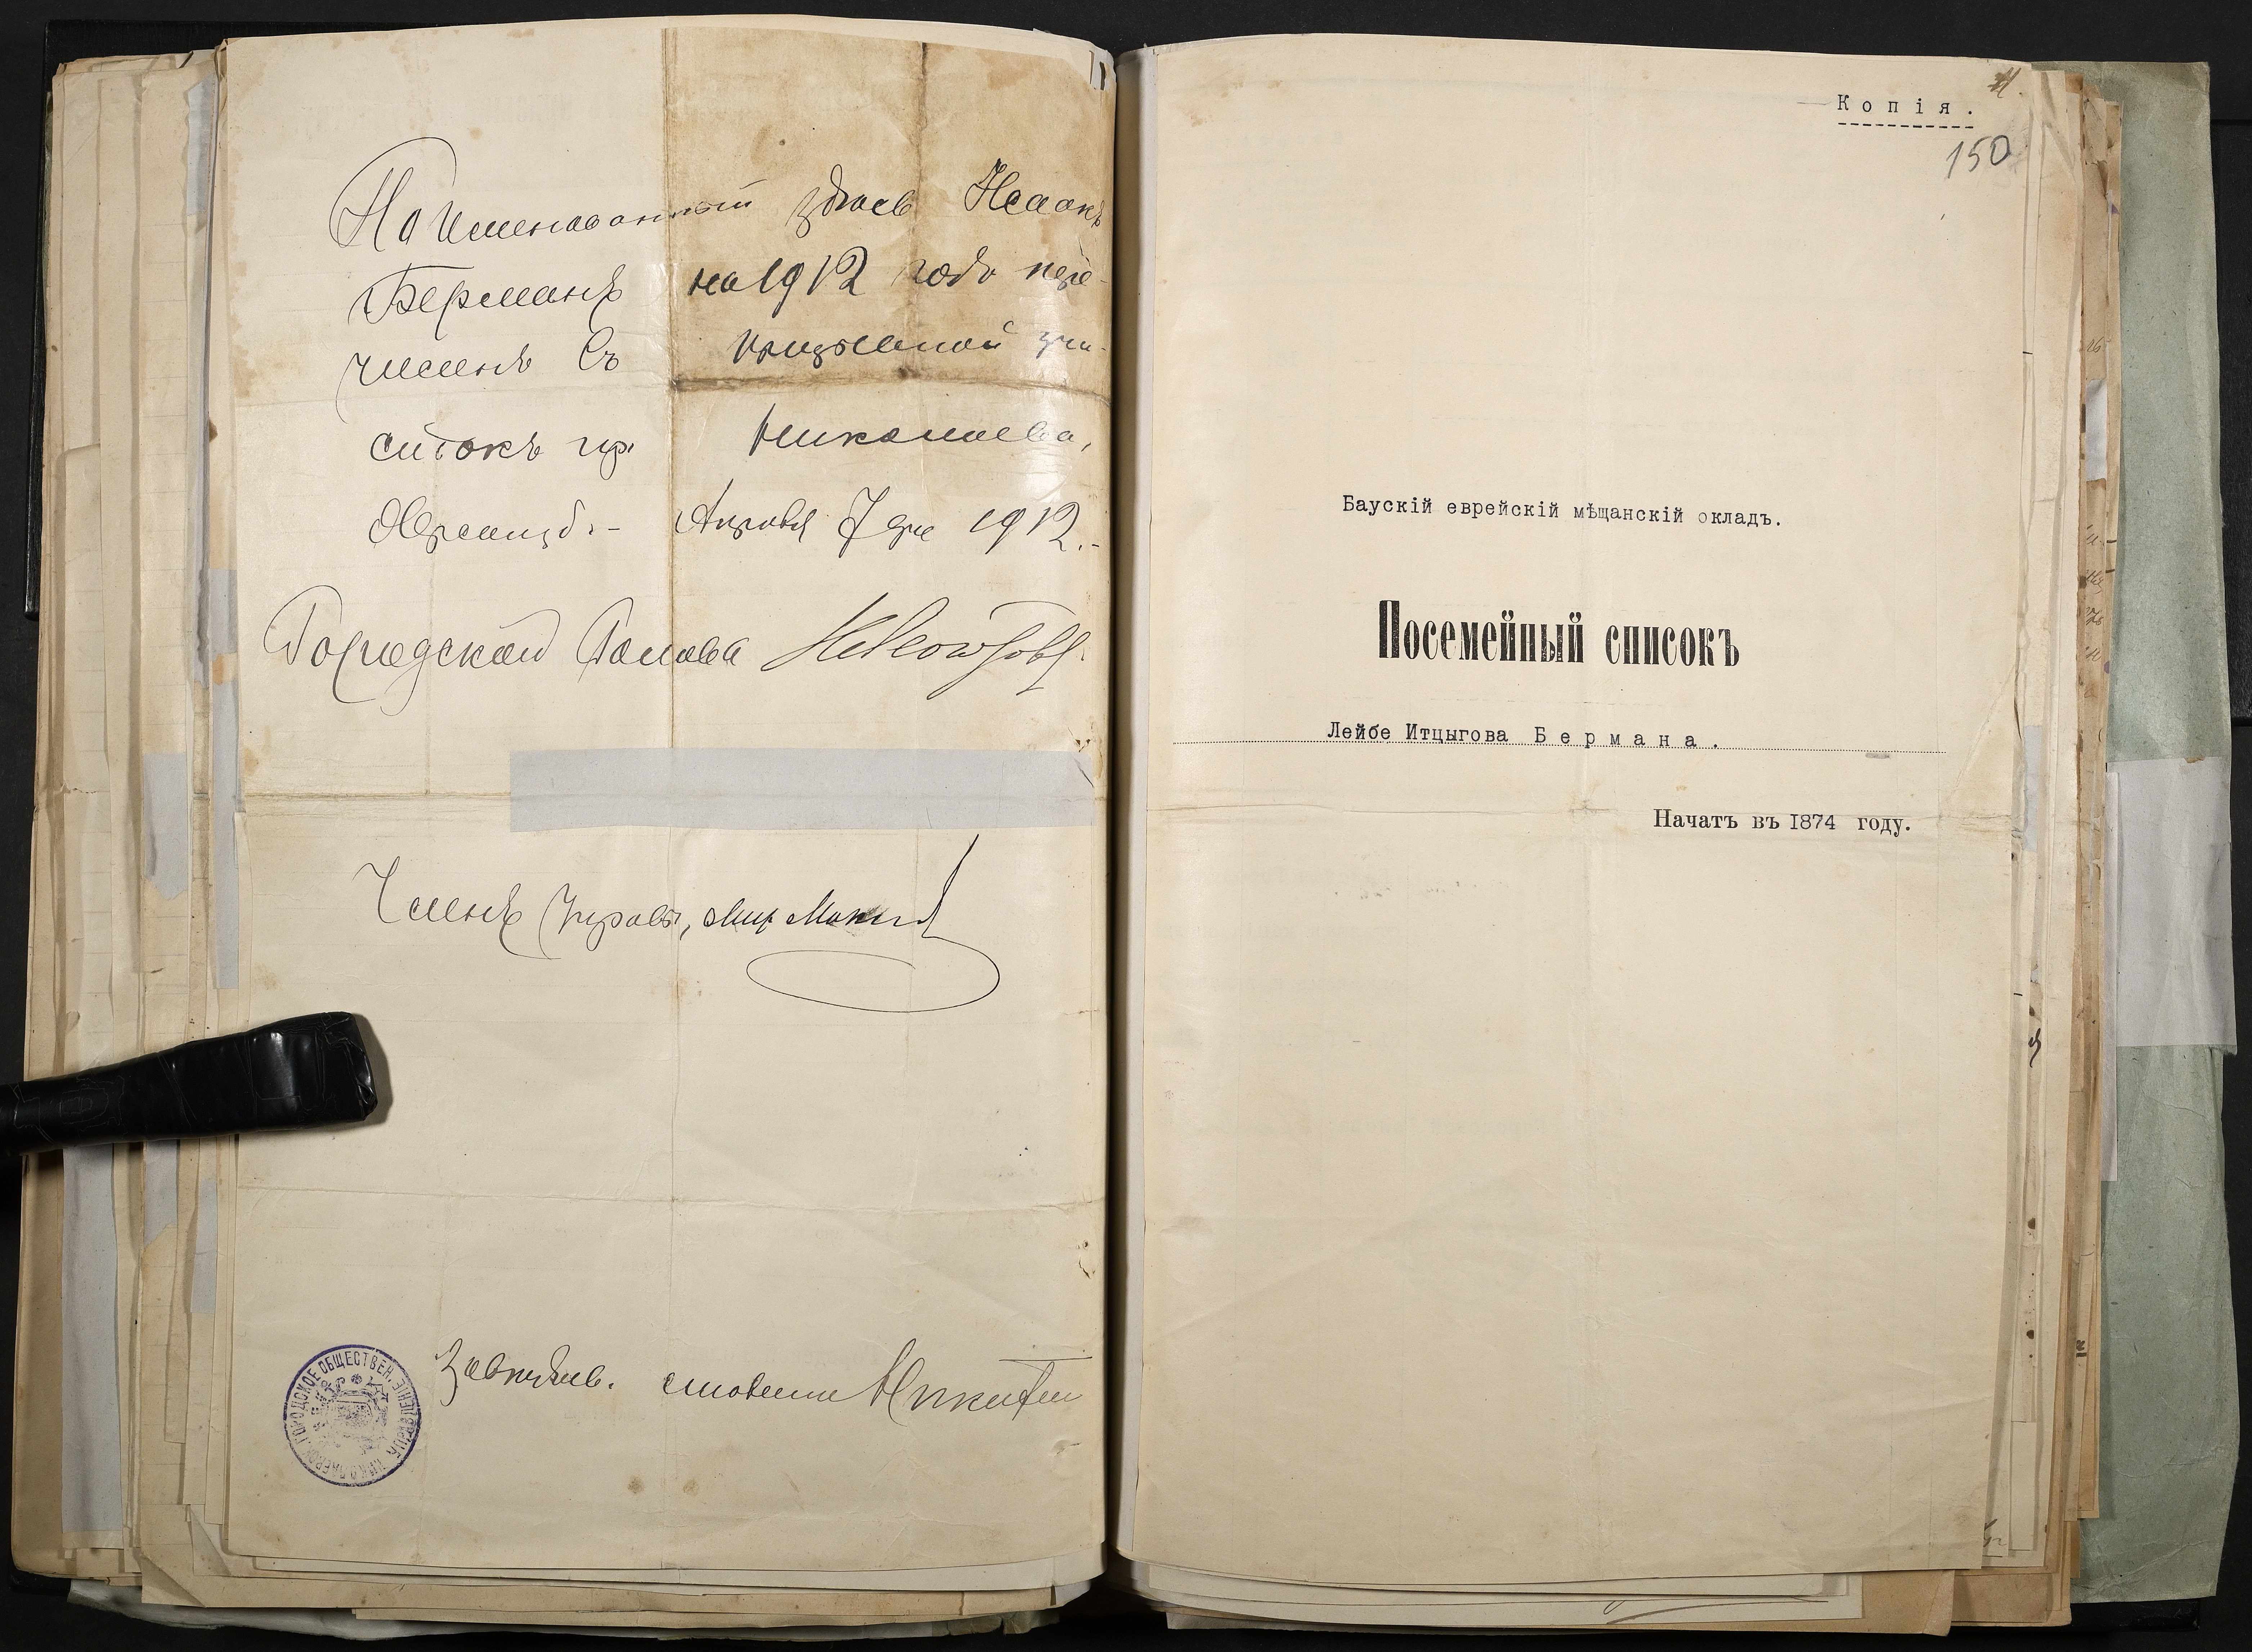 Наименованный здѣсь Исаакъ
Берманъ на 1912 годъ пере-
численъ въ призывной уча-
стокъ гор. Николаева,
Херсонск. Апрѣля 7 дня 1912.-
Городской Голова
Членъ Управы,
Завѣдыв. столомъ Никитин
ГОРОДСКОЕ ОБЩЕСТВЕН. УПРАВЛЕНІЕ
Копія.
150
Баускій еврейскій мѣщанскій окладъ.
Посемейный списокъ
Лейбе Итцыгова Бермана.
Начатъ въ 1874 году.